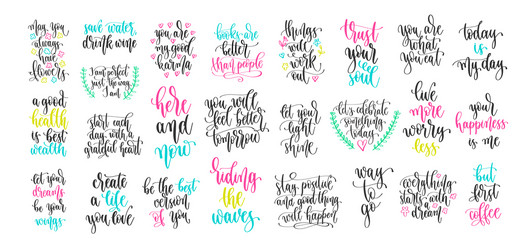 may you
always
have
flowers
save water,
drink wine
I am perfect
just the way
I am
you are
my good
karma
books are
better
than people
things
will
work
out
trust
your
soul
you are
what
you eat
today
is
my day
a good
health
is best
wealth
start each
day with a
grateful heart
here
and
now
you will
feel better
tomorrow
let your
light
shine
let's celebrate
something
today
live
more
worry
less
your
happiness
is me
let your
dreams
be your
wings
create
a life
you love
be the best
version
of you
riding
the
waves
stay positive
and good
things
will happen
way
to
go
everything
starts with
dream
but
first
coffee